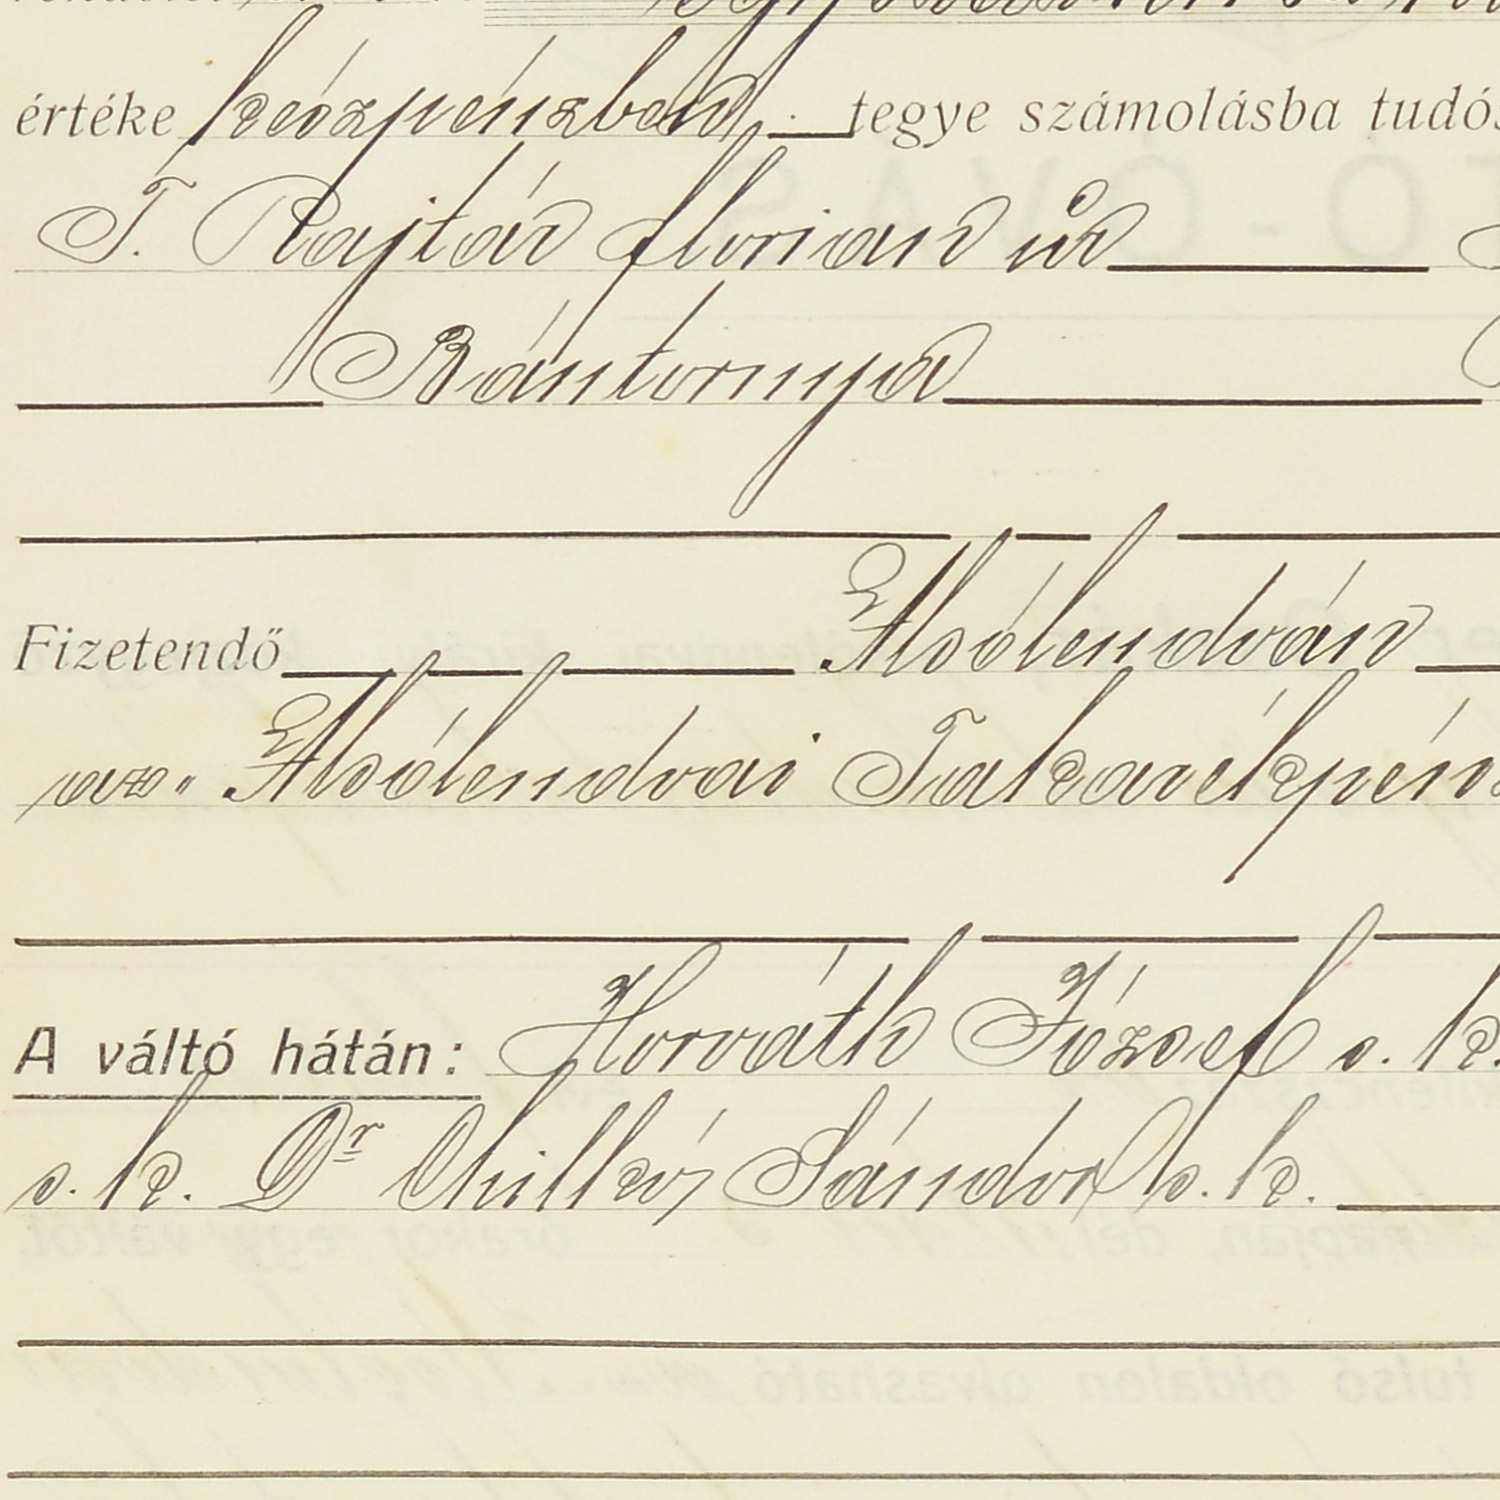 értéke készpénzben tegye számolásba
T. Rajtár florian úr
Bántornya
Fizetendő Alsólendván
az Alsólendvai Takarékpénz
A váltó hátán: Horváth József s. k.
s. k. Dr Sándor s. k.